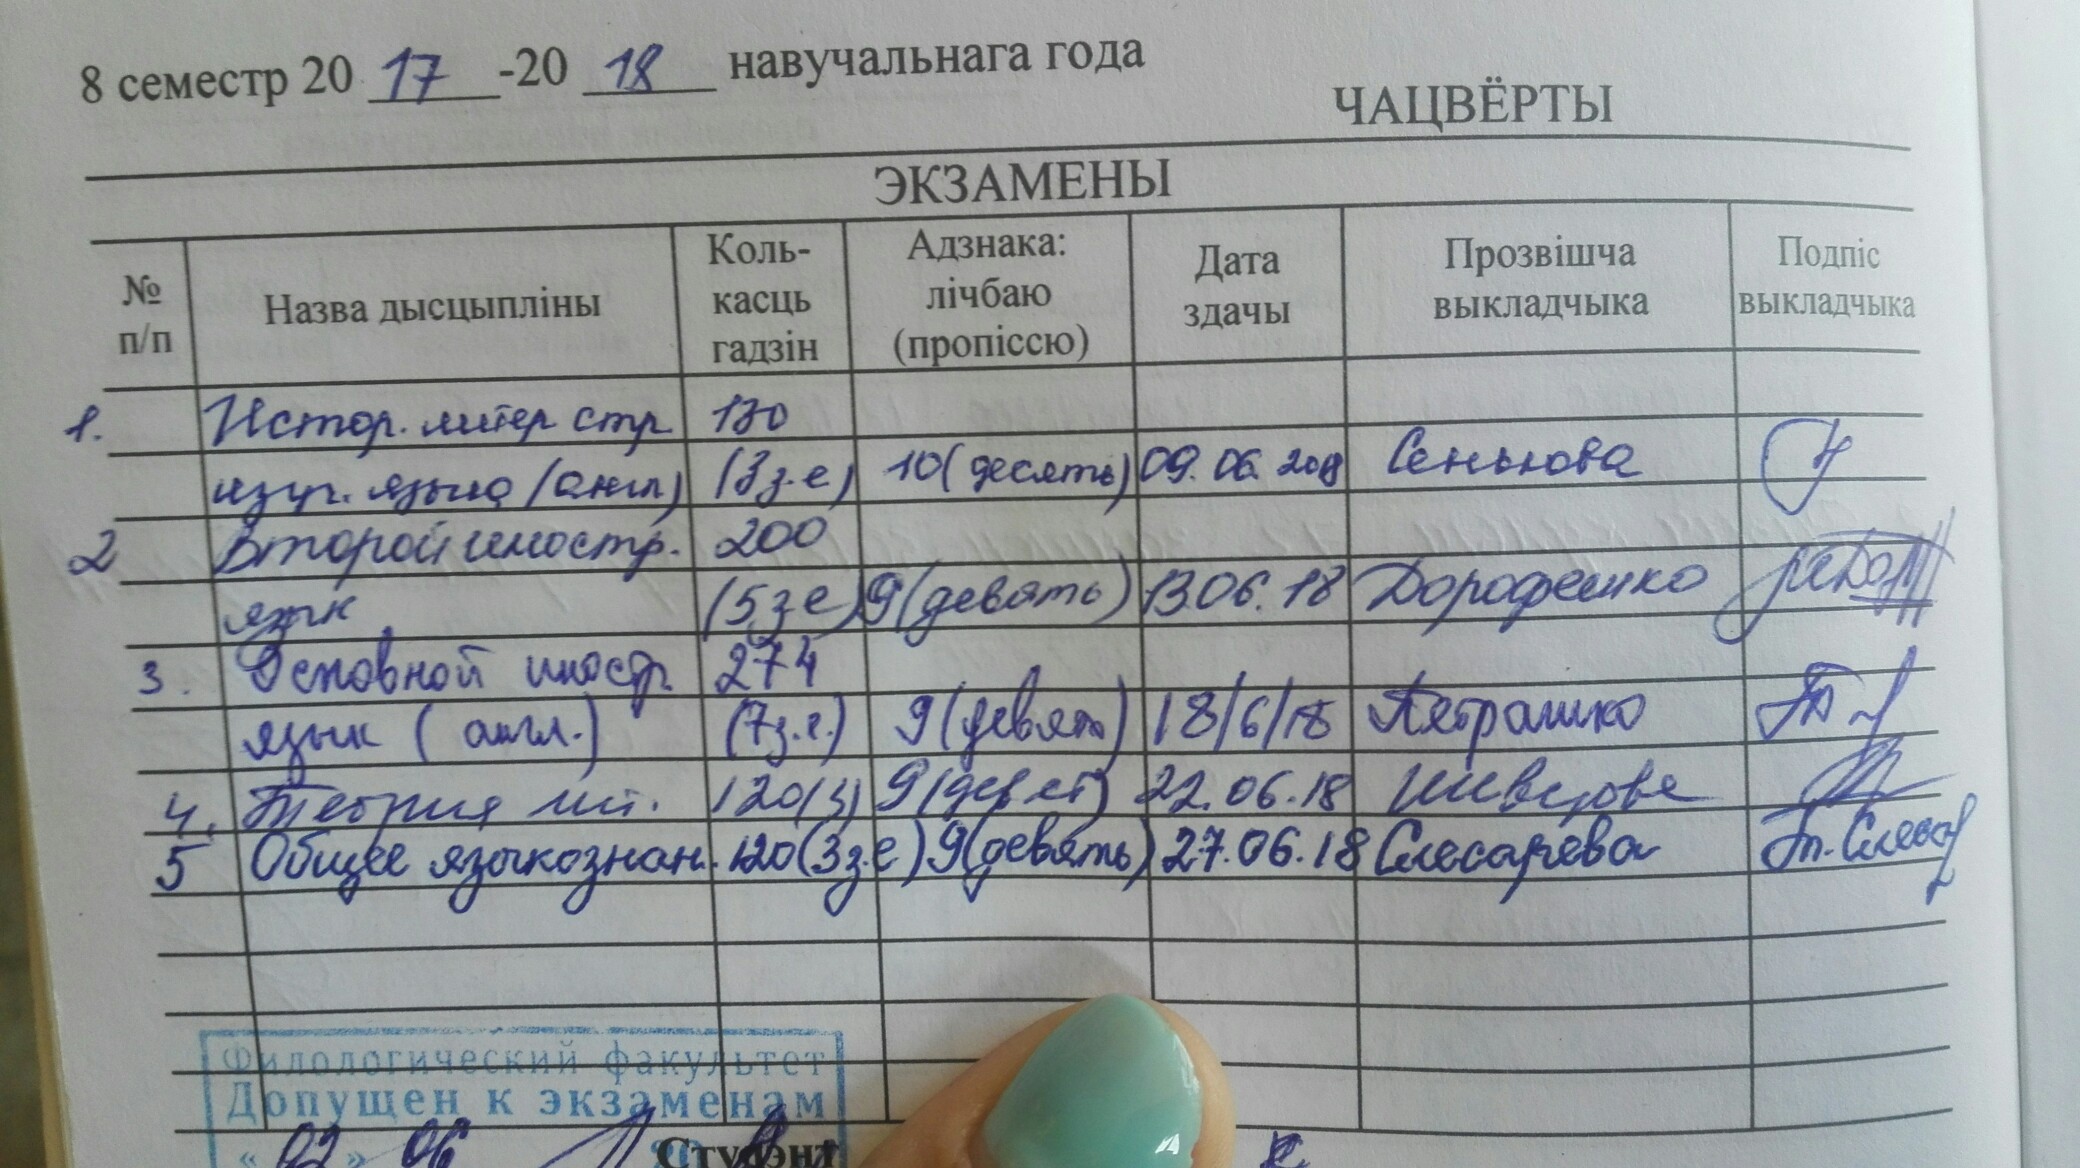 8 семестр 20 17 -20 18 навучальнага года
ЧАЦВЁРТЫ
ЭКЗАМЕНЫ
№ п/п Назва дысцыпліны Коль- касць гадзін Адзнака: лічбаю (пропіссю) Дата здачы Прозвішча выкладчыка Подпіс выкладчыка
1. Истор. литер стр 130
изуч. языка (англ) (3 з.е) 10 (десять) 09.06.2018 Сенькова
2 Второй иностр. 200
язык (5 з е) 9 (девять) 13.06.18
3. Основной иностр. 274
язык (англ.) (7 з.е.) 9 (девять) 18/6/18 Петрашко
4. Теория лит. 120(3) 9 (девят) 22.06.18
5 Общее языкознан. 120 (3 з.е) 9 (девять) 27.06.18 Слесарева
Филологический факультет
Допущен к экзаменам
« 02 » 06
Студэнт